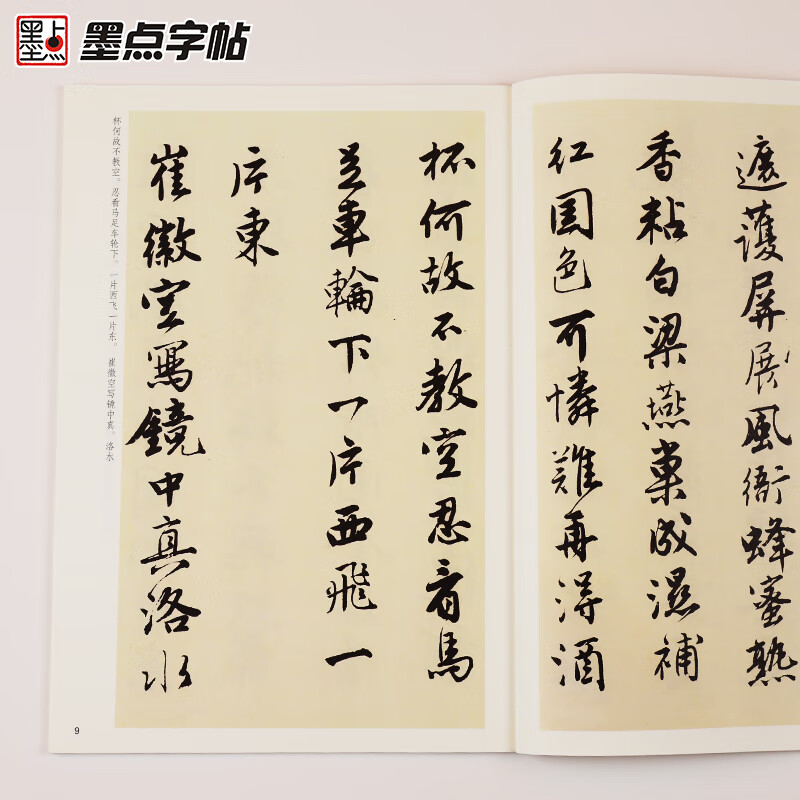 墨点
墨点字帖
遮護屏展風衙蜂蜜熟
香粘白梁燕巢成濕補
紅国色可憐難再得酒
杯何故不教空忍看馬
足車輪下一片西飛一
片東
崔徽空寫鏡中真洛水
杯何故不教空。忍看马足车轮下。一片西飞一片东。 崔徽空写镜中真。洛水
9